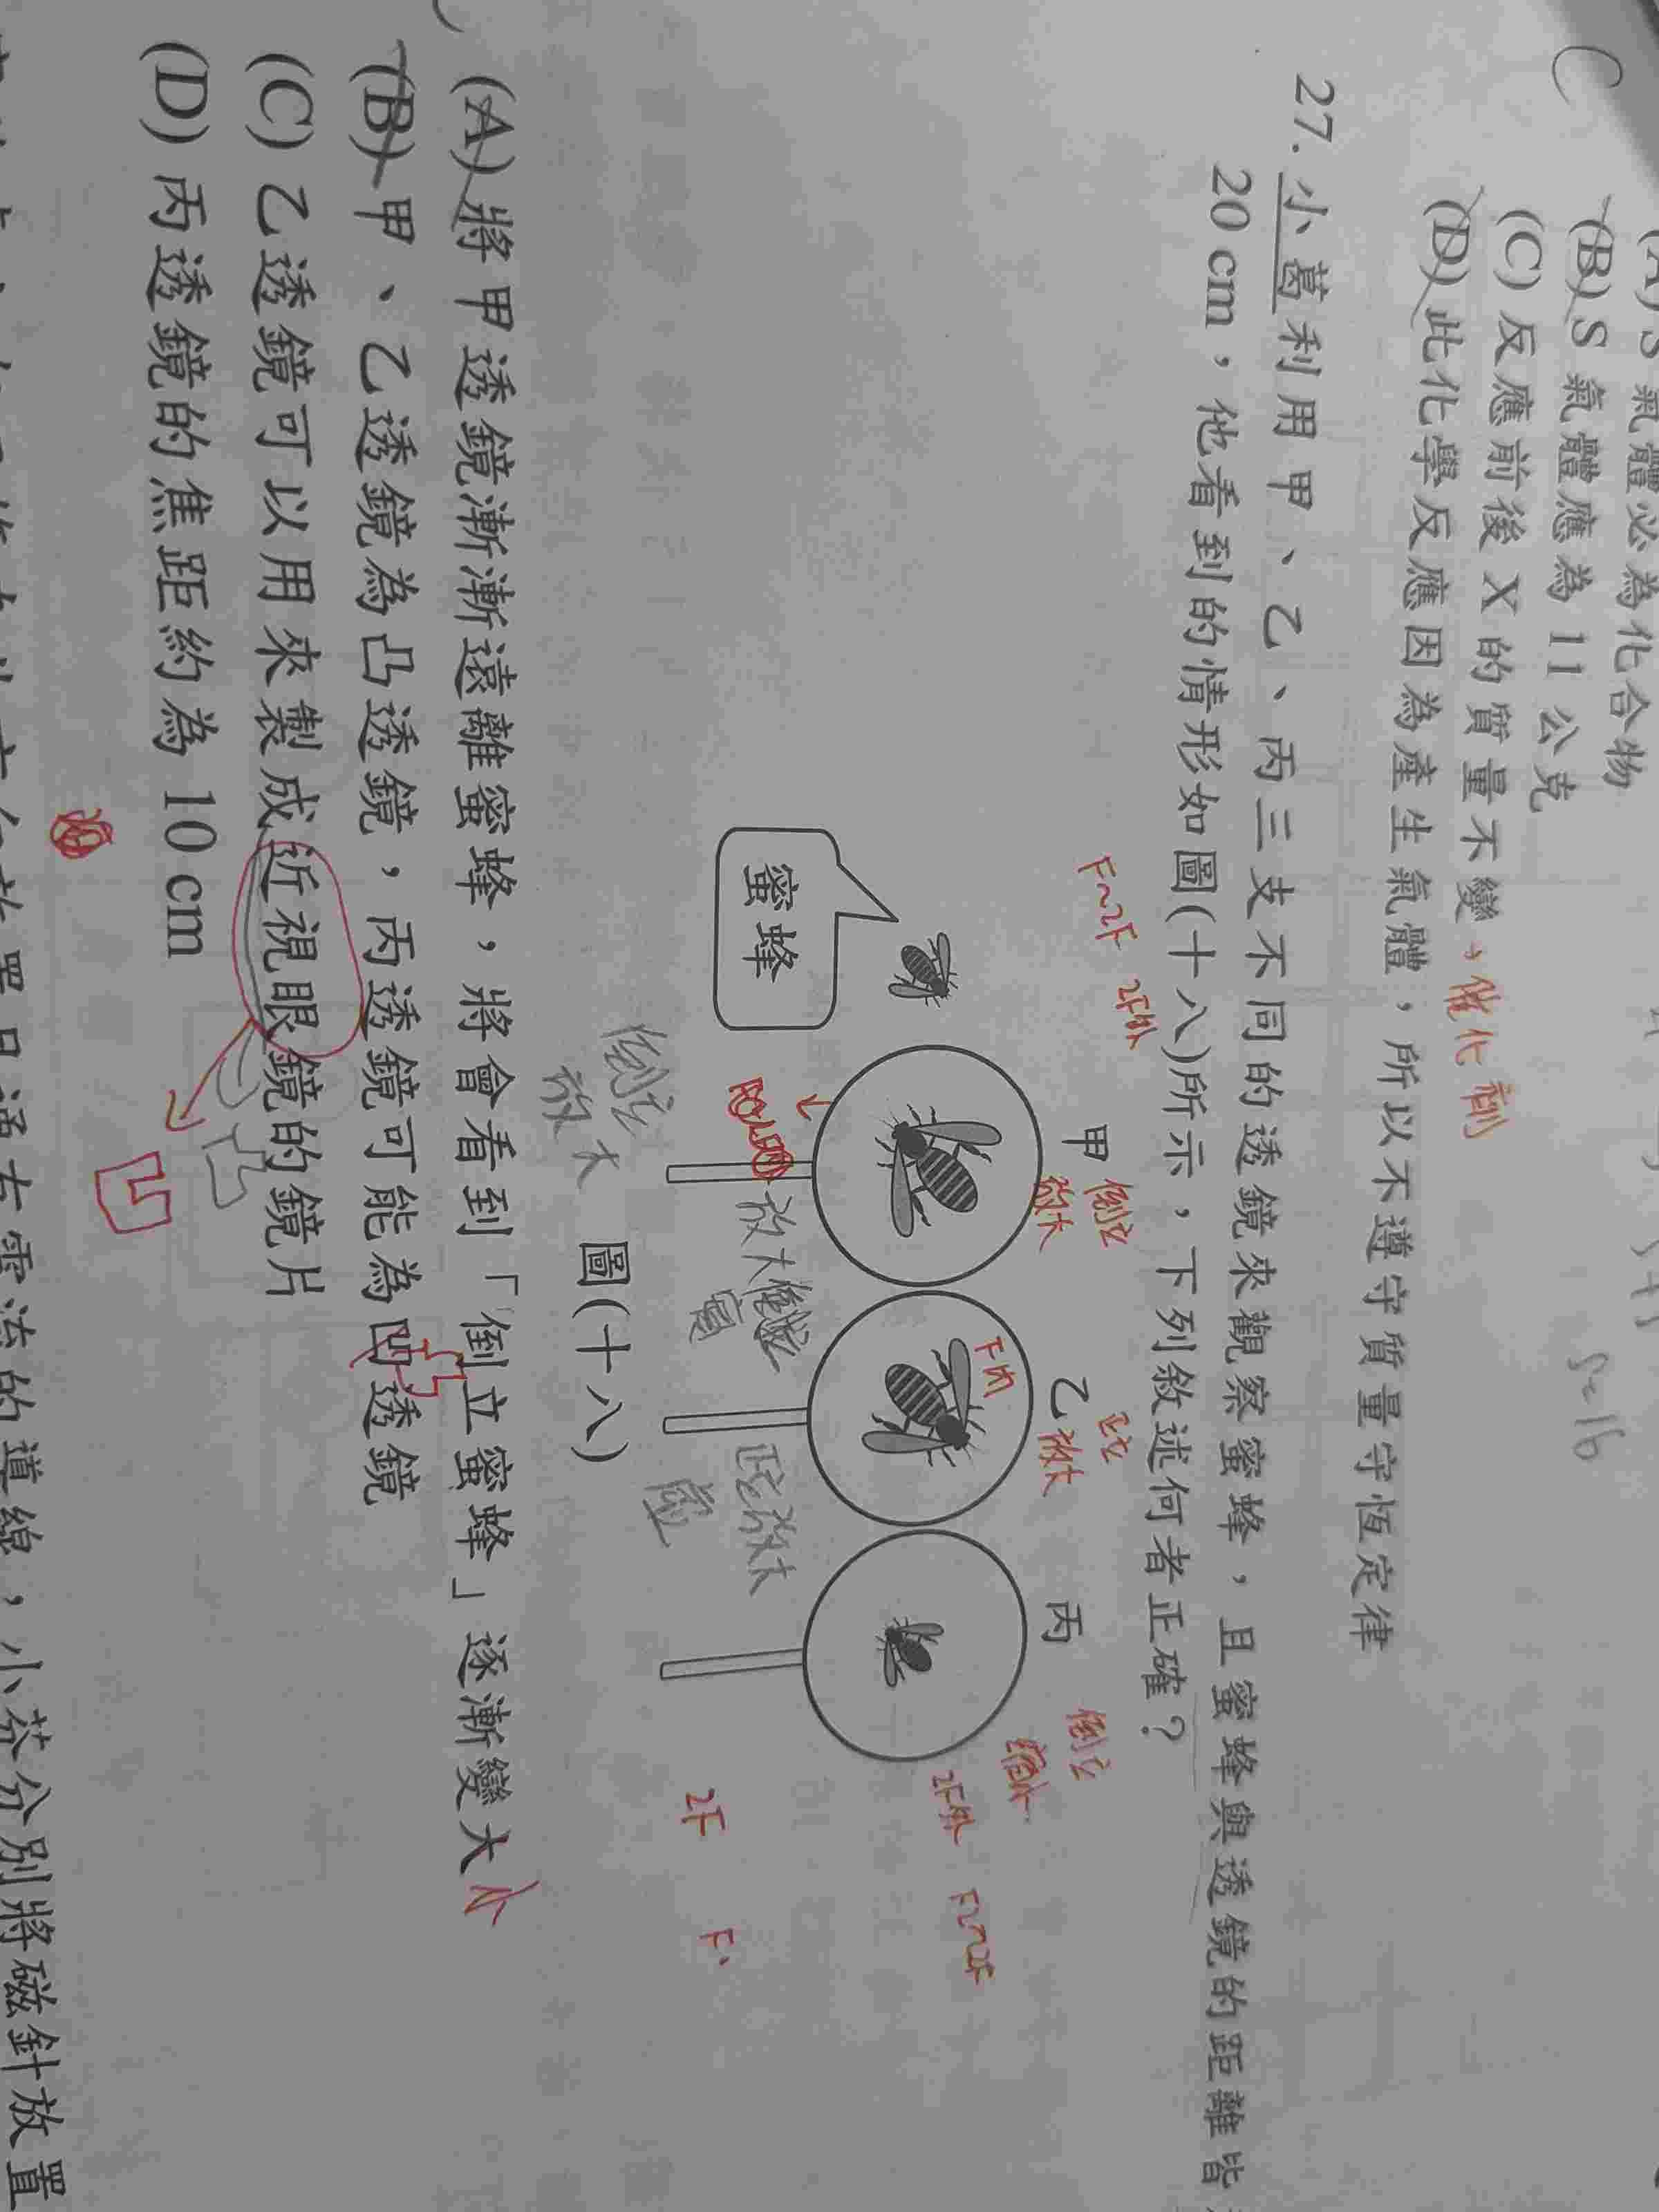 (A) S 氣體必為化合物
(B) S 氣體應為 11 公克
(C) 反應前後 X 的質量不變 → 催化劑
(D) 此化學反應因為產生氣體，所以不遵守質量守恆定律
S=16
27. 小葛利用甲、乙、丙三支不同的透鏡來觀察蜜蜂，且蜜蜂與透鏡的距離皆
20 cm，他看到的情形如圖(十八)所示，下列敘述何者正確？
F~2F 2F外
甲 倒立
放大
乙 正立
放大
丙 倒立
縮小
2F外 F~2F
F內
蜜蜂
放大
正立放大
虛
倒立
放大
2F F
圖(十八)
(A) 將甲透鏡漸漸遠離蜜蜂，將會看到「倒立蜜蜂」逐漸變大 小
(B) 甲、乙透鏡為凸透鏡，丙透鏡可能為凹透鏡
凸
(C) 乙透鏡可以用來製成近視眼鏡的鏡片
凸
凹
(D) 丙透鏡的焦距約為 10 cm
小芬分別將磁針放置